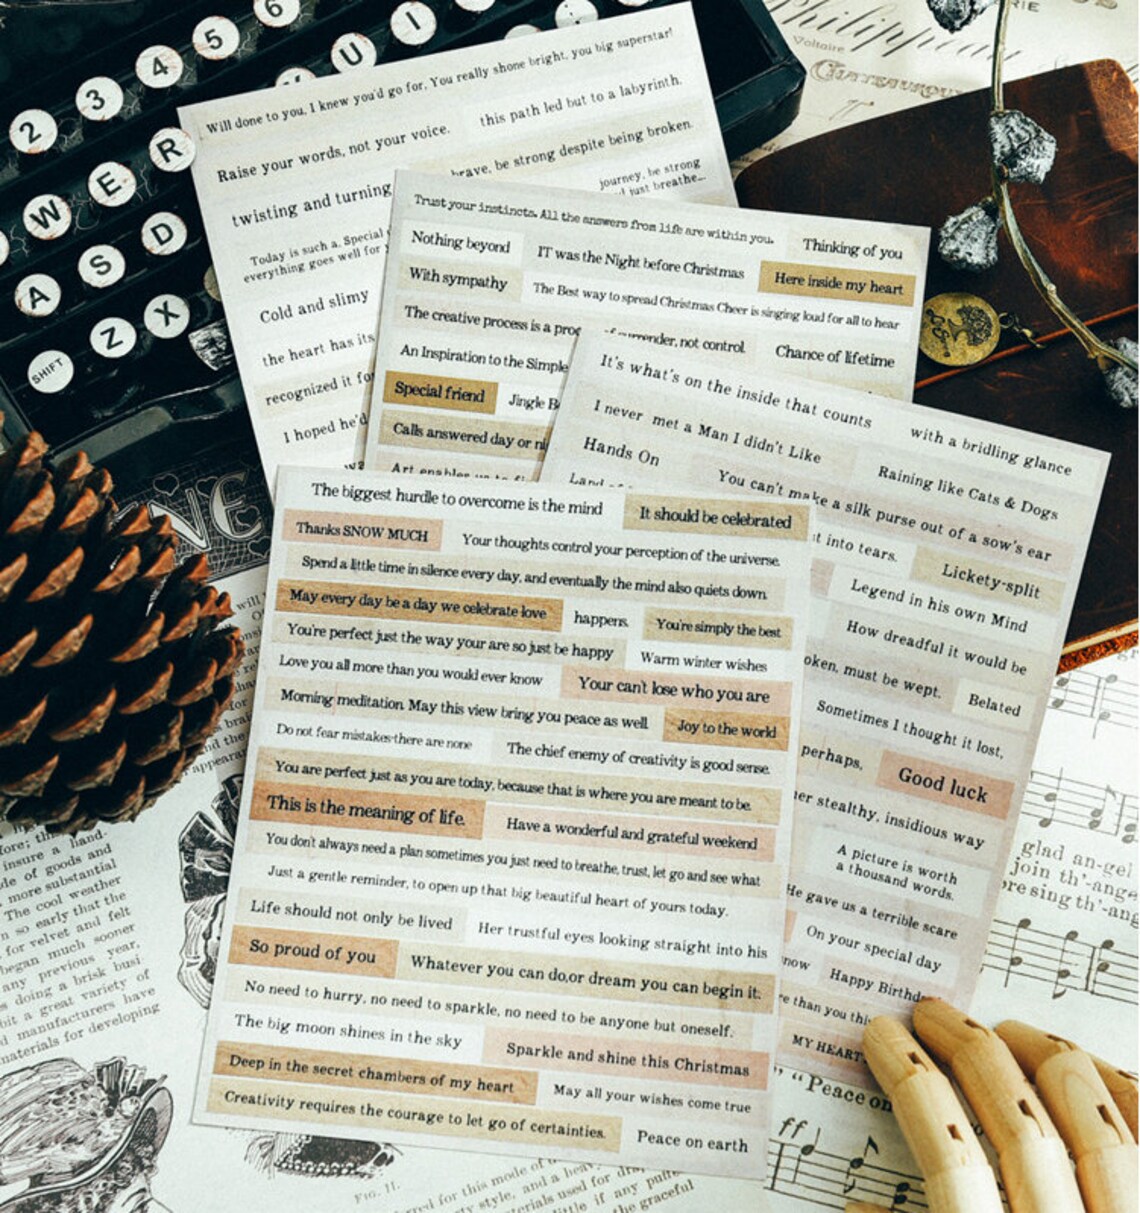 6
5
4
3
2
U
I
R
E
W
D
S
A
X
Z
SHIFT
Philippean
Voltaire
RIE
Will done to you, I knew you'd go for, You really shone bright, you big superstar!
Raise your words, not your voice.
this path led but to a labyrinth.
twisting and turning
brave, be strong despite being broken.
journey, be strong
just breathe...
Today is such a. Special
everything goes well for
Cold and slimy
the heart has its
recognized it for
I hoped he'd
Trust your instincts. All the answers from life are within you.
Thinking of you
Nothing beyond
IT was the Night before Christmas
Here inside my heart
With sympathy
The Best way to spread Christmas Cheer is singing loud for all to hear
The creative process is a
surrender, not control.
Chance of lifetime
An Inspiration to the Simple
Special friend
Jingle
Calls answered day or
Art enables us to
It's what's on the inside that counts
with a bridling glance
I never met a Man I didn't Like
Raining like Cats & Dogs
Hands On
You can't make a silk purse out of a sow's ear
Land of
into tears.
Lickety-split
Legend in his own Mind
How dreadful it would be
must be wept.
Belated
Sometimes I thought it lost,
perhaps,
Good luck
stealthy, insidious way
A picture is worth
a thousand words.
He gave us a terrible scare
On your special day
Happy Birthday
than you
MY HEART
The biggest hurdle to overcome is the mind
It should be celebrated
Thanks SNOW MUCH
Your thoughts control your perception of the universe.
Spend a little time in silence every day, and eventually the mind also quiets down.
May every day be a day we celebrate love
happens.
You're simply the best
You're perfect just the way your are so just be happy
Warm winter wishes
Love you all more than you would ever know
Your can't lose who you are
Morning meditation. May this view bring you peace as well.
Joy to the world
Do not fear mistakes-there are none
The chief enemy of creativity is good sense.
You are perfect just as you are today, because that is where you are meant to be.
This is the meaning of life.
Have a wonderful and grateful weekend
You don't always need a plan sometimes you just need to breathe, trust, let go and see what
Just a gentle reminder, to open up that big beautiful heart of yours today.
Life should not only be lived
Her trustful eyes looking straight into his
So proud of you
Whatever you can do,or dream you can begin it.
No need to hurry, no need to sparkle, no need to be anyone but oneself.
The big moon shines in the sky
Sparkle and shine this Christmas
Deep in the secret chambers of my heart
May all your wishes come true
Creativity requires the courage to let go of certainties.
Peace on earth
insure a hand-
of goods and
more substantial
The cool weather
so early that the
for velvet and felt
began much sooner
any previous year,
doing a brisk busi
a great variety of
manufacturers have
materials for developing
glad an-gel
join th'-ange
sing th'-ang
"Peace on
ff
FIG. 11.
for this mode of
style, and a
materials used for
little if any
the graceful